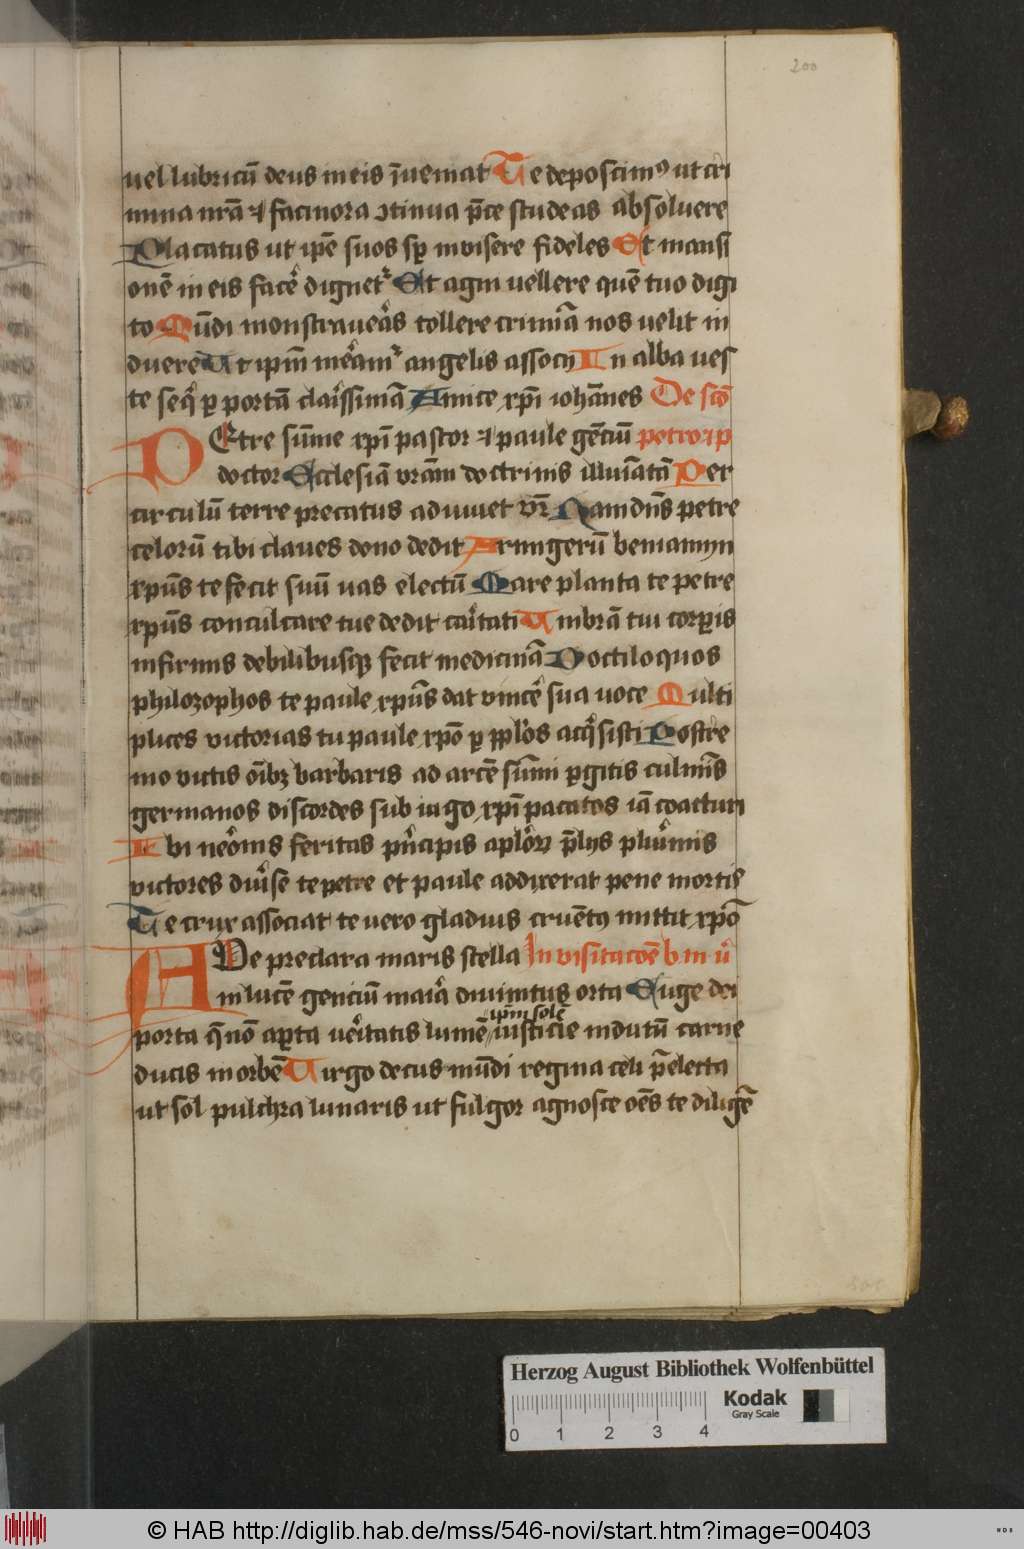 200
uel lubricū deus meis īuemat Te deposcimꝰ ut cri
mina nrā ⁊ facinora ɔtinua p̄ce studeas absoluere
Placatus ut ip̄e suos sp̄ inuisere fideles Et mansi
onē in eis facē dignetʳ Et agni vellere quē tuo digi
to Mūdi monstraueās tollere crimīa nos uelit in
duere Ut ipm̄ meream̄ʳ angelis associj In alba ues
te seqͥ ꝑ portā claissimā Amice xp̄i iohānes De scō
PEtre sūme xp̄i pastor ⁊ paule gēciū petro ⁊ p
doctor Ecclesiā vrām doctrinis illuīatā Per
circulū terre precatus adiuuet vr̄ Nam dn̄s petre
celorū tibi claues dono dedit Armigerū beniamyn
xp̄us te fecit suū uas electū Mare planta te petre
xp̄us conculcare tue dedit caͥtati Umbrā tui corꝑis
infirmis debilibusqꝫ fecit medicinā Doctiloquos
philozophos te paule xp̄us dat vincē sua uoce Multi
plices victorias tu paule xp̄o ꝑ pplōs acqͥsisti Postre
mo victis oībꝫ barbaris ad arcē sūmi ꝑgitis culmīs
germanos discordes sub iugo xp̄i pacatos iā coacturi
Ibi neōnis feritas pͥncipis aplōꝝ p̄lijs pluͥmis
victores diuͥse te petre et paule addixerat pene mortis
Te crux associat te uero gladius cruētꝰ mittit xp̄o
AVe preclara maris stella In visitacōe b m v̄
in lucē genciū maiā diuinitus orta Euge dei
porta q̄ nō aꝑta ueͥtatis lumē ip̄m solē iusticie indutū carne
ducis in orbē Uirgo decus mūdi regina celi p̄electa
ut sol pulchra lunaris ut fulgor agnosce oēs te diligē
Herzog August Bibliothek Wolfenbüttel
Kodak
Gray Scale
0 1 2 3 4
© HAB http://diglib.hab.de/mss/546-novi/start.htm?image=00403